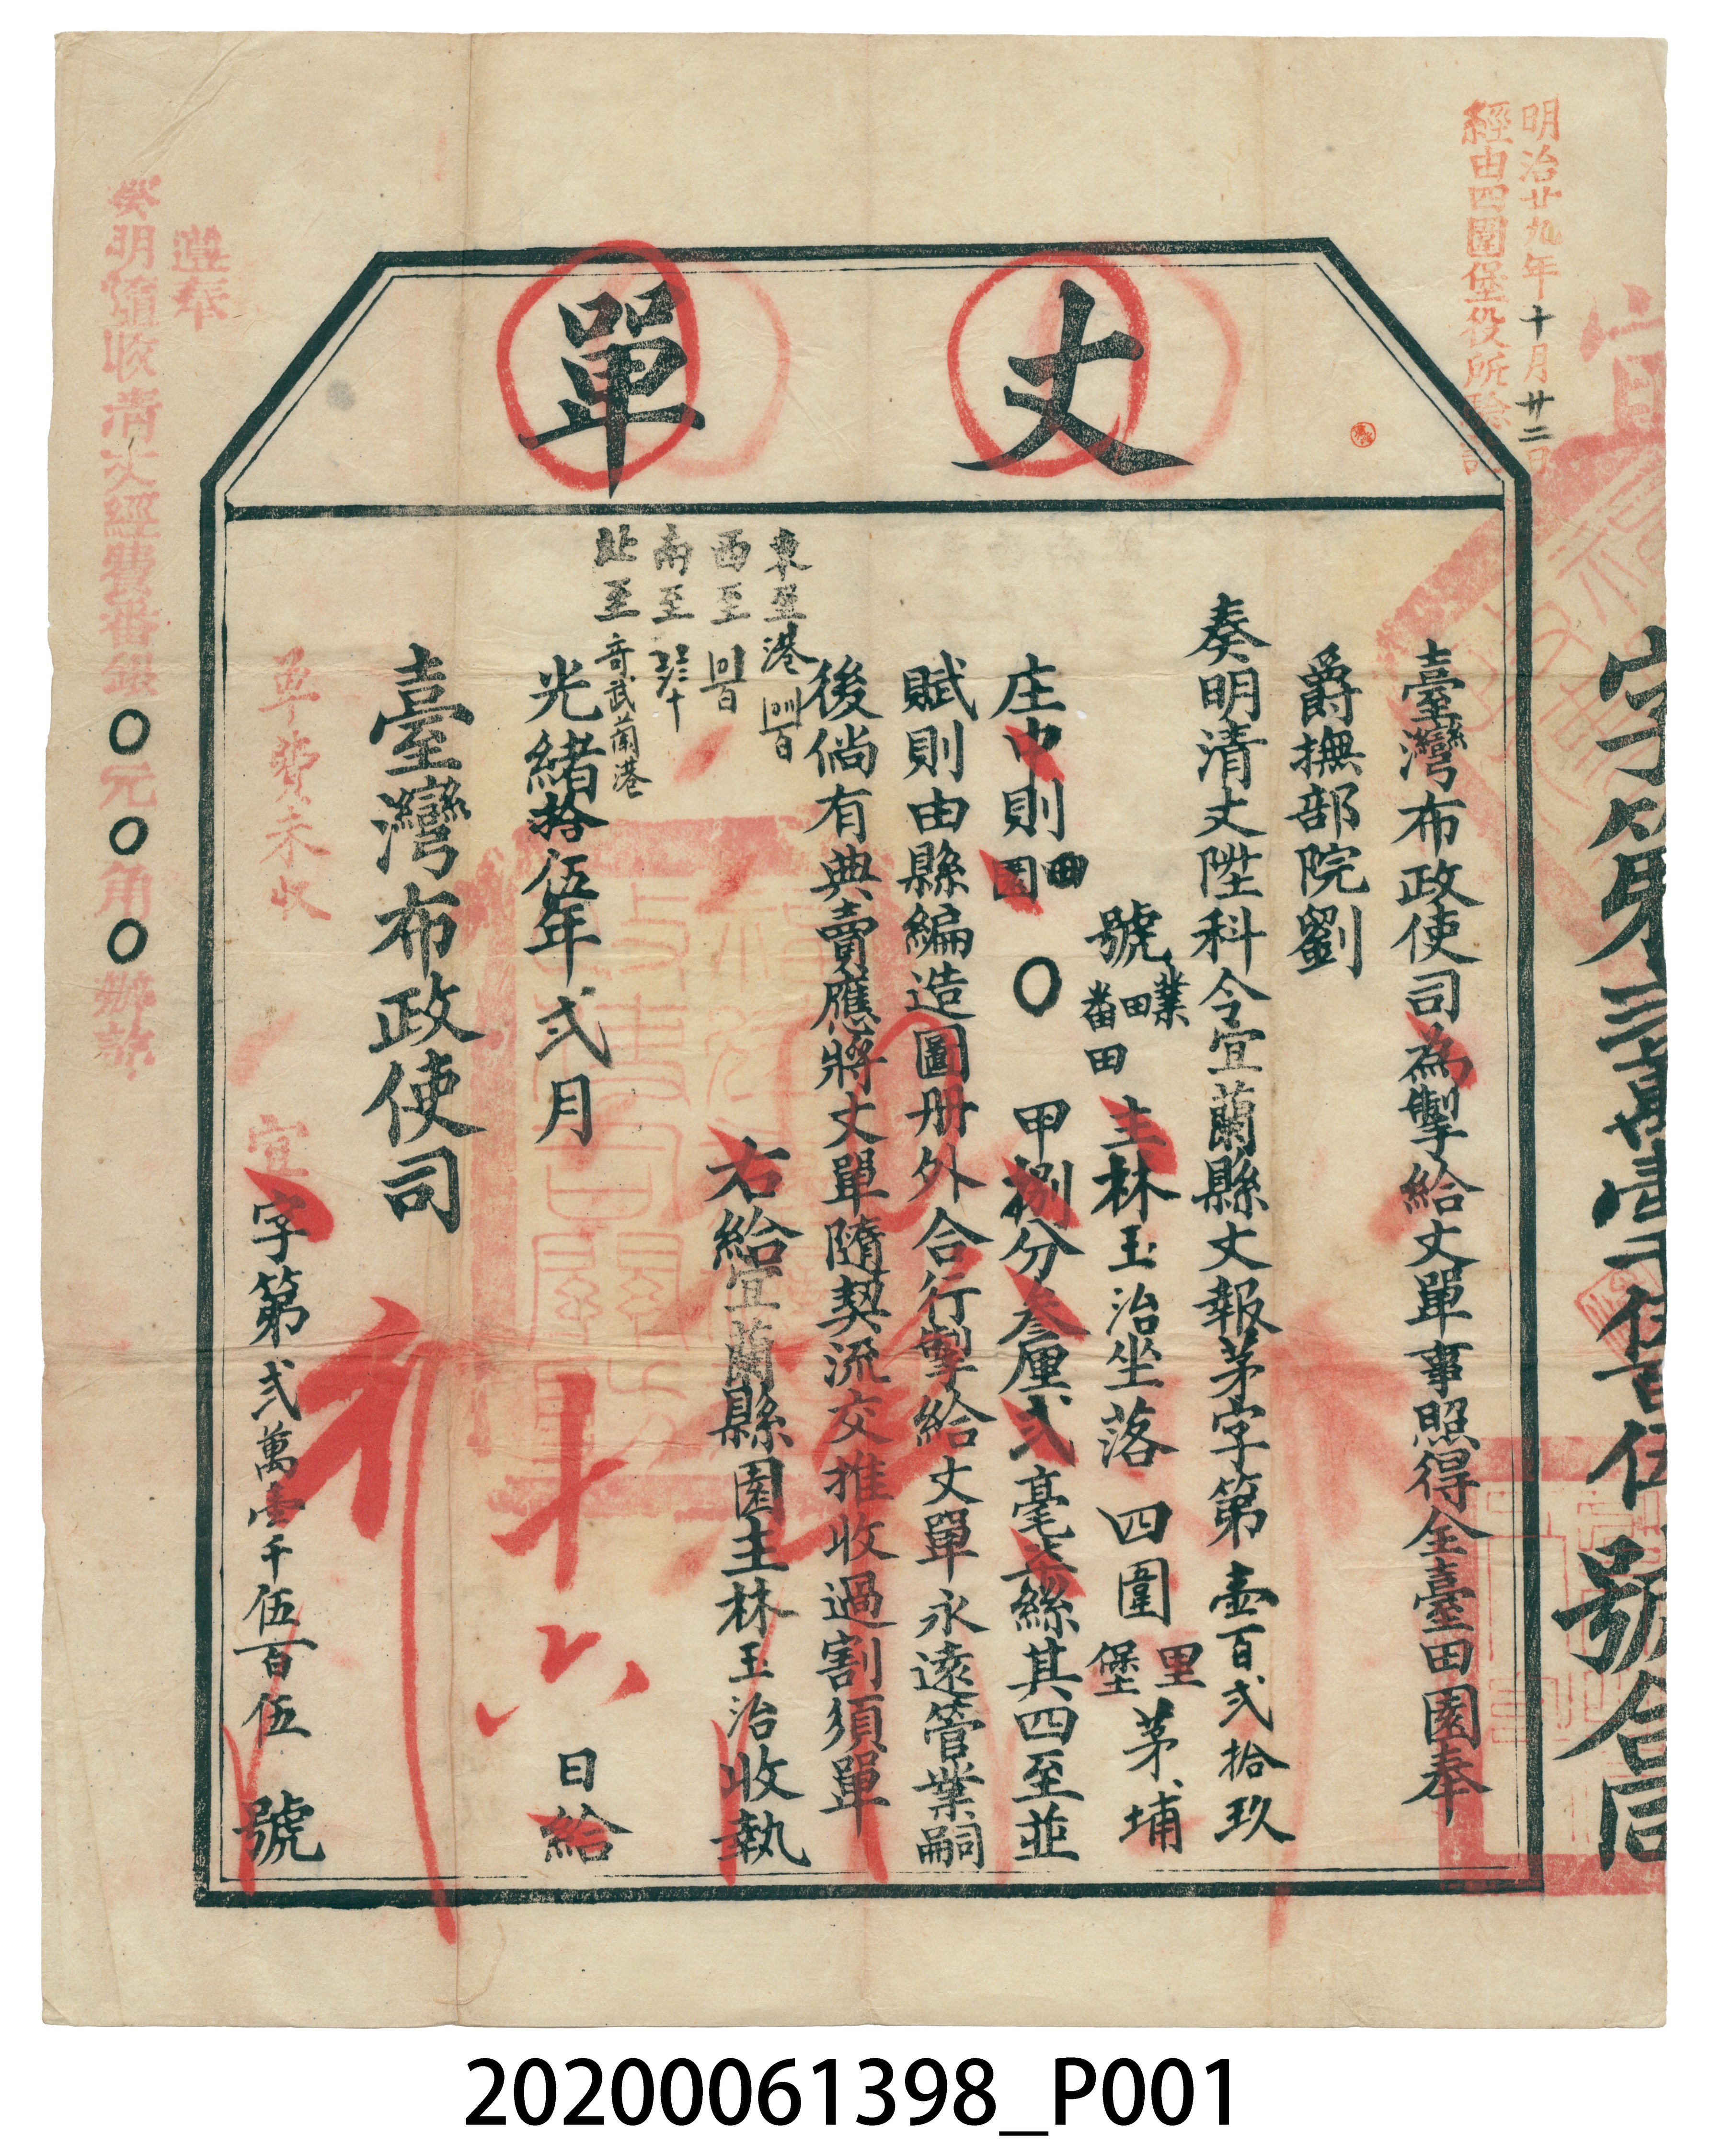 明治廿九年十月廿二日
經由四圍堡役所驗訖
字第貳萬壹千伍百伍號合同
丈單
臺灣布政使司為掣給丈單事照得全臺田園奉
爵撫部院劉
奏明清丈陞科今宜蘭縣丈報茅字第壹百貳拾玖
號業田番田主林玉治坐落四圍里堡茅埔
庄中則田園〇甲捌分叁厘貳毫柒絲其四至並
賦則由縣編造圖冊外合行掣給丈單永遠管業嗣
後倘有典賣應將丈單隨契流交推收過割須單
東至港
西至
南至
北至奇武蘭港
右給宜蘭縣園主林玉治收執
光緒拾伍年貳月十六日給
臺灣布政使司
單費未收
宜字第貳萬壹千伍百伍號
遵奉
奏明隨收清丈經費番銀〇元〇角〇辦訖
20200061398_P001